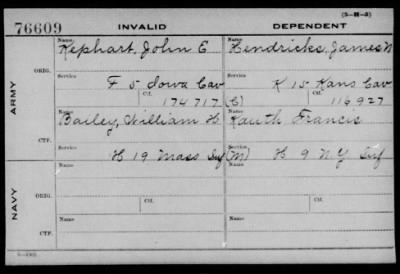 (3-H-3)
76609 INVALID DEPENDENT
Name Kephart, John E Name Hendricks, James W
ORIG. Service F 5 Iowa Cav Service K 15 Kans Cav
Ctf. 174717 (C) Ctf. 116927
ARMY
Name Bailey, William H Name Kauth Francis
CTF. Service H 19 Mass Inf (M) Service H 9 N.Y Inf
Name Name
ORIG. Service Service
Ctf. Ctf.
NAVY
Name Name
CTF. Service Service